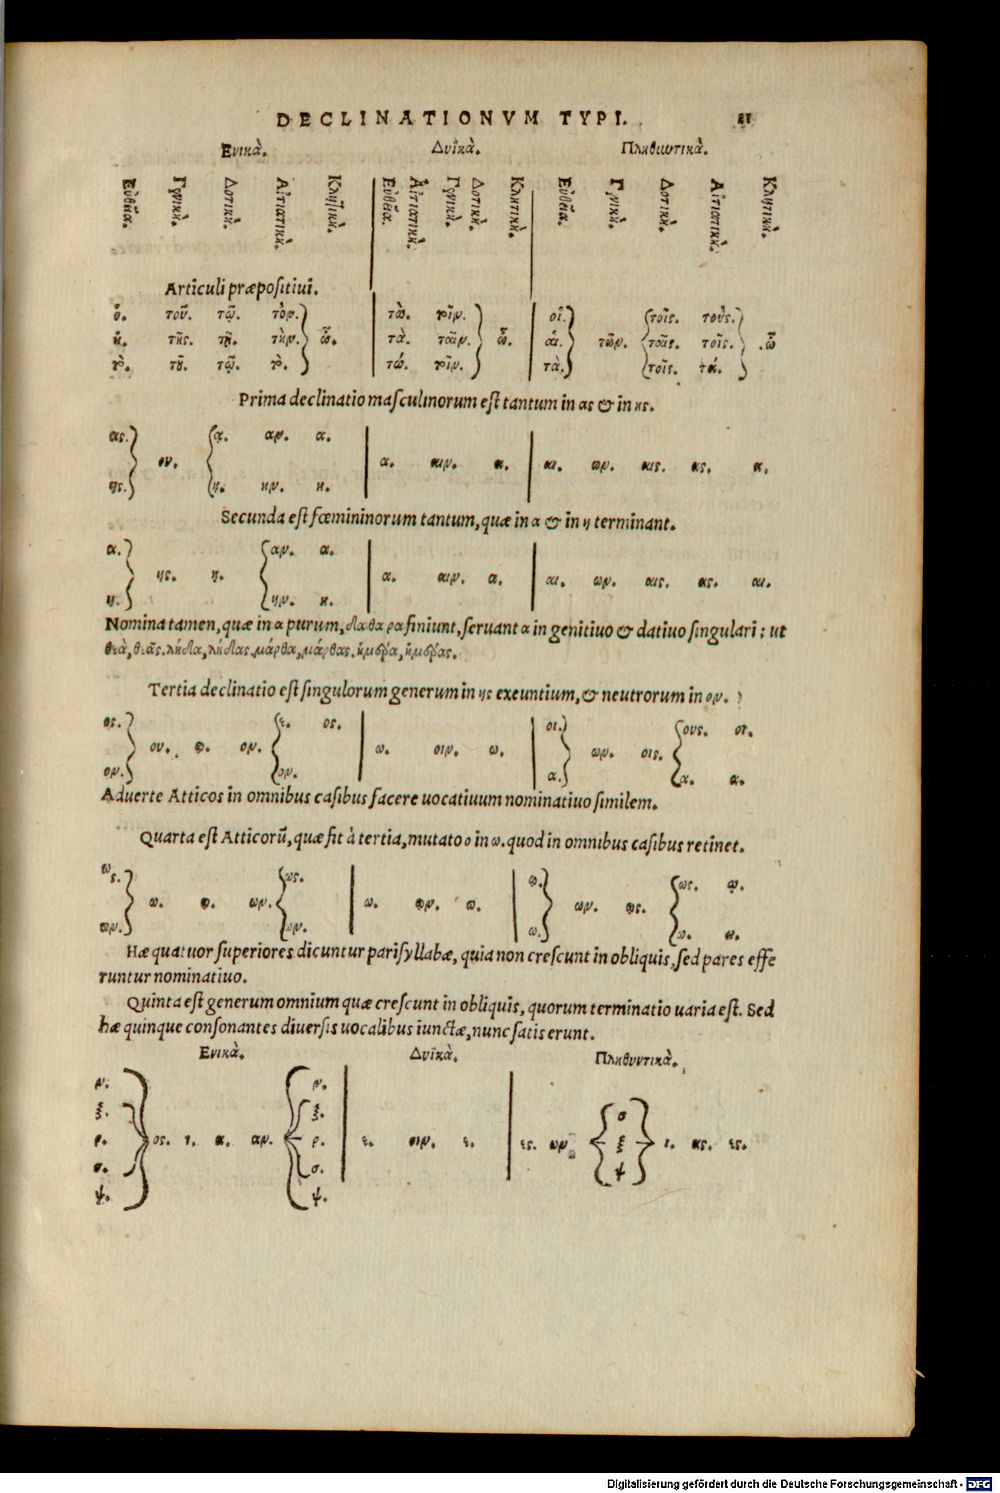 DECLINATIONVM TYPI. 21
Ενικὰ. Δυϊκὰ. Πληθυντικὰ.
Εὐθεῖα. Γενικὴ. Δοτικὴ. Αἰτιατικὴ. Κλητικὴ. Εὐθεῖα. Αἰτιατικὴ. Γενικὴ. Δοτικὴ. Κλητικὴ. Εὐθεῖα. Γενικὴ. Δοτικὴ. Αἰτιατικὴ. Κλητικὴ.
Articuli præpositiui.
ὁ. τοῦ. τῷ. τὸν. τὼ. τοῖν. οἱ. τοῖς. τοὺς.
ἡ. τῆς. τῇ. τὴν. ὦ. τὰ. ταῖν. ὦ. αἱ. τῶν. ταῖς. .ὦ
τὸ. τῦ. τῷ. τὸ. τώ. τοῖν. τὰ. τοῖς. τά.
Prima declinatio masculinorum est tantum in ας & in ης.
ας. ᾳ. αν. α.
ου. α. αιν. α. αι. ων. αις. ας. α.
ης. ῃ. ην. η.
Secunda est fœmininorum tantum, quæ in α & in η terminant.
α. αν. α.
ης. ῃ. α. αιν. α. αι. ων. αις. ας. αι.
η. ην. η.
Nomina tamen, quæ in α purum, δα θα ρα finiunt, seruant α in genitiuo & datiuo singulari: ut
θεὰ, θεᾶς. λήδα, λήδας. μάρθα, μάρθας. ἡμέρα, ἡμέρας.
Tertia declinatio est singulorum generum in ης exeuntium, & neutrorum in ον.
ος. ε. ος. οι. ους. οι.
ου. ῳ. ον. ω. οιν. ω. ων. οις.
ον. ον. α. α. α.
Aduerte Atticos in omnibus casibus facere uocatiuum nominatiuo similem.
Quarta est Atticorũ, quæ fit à tertia, mutato ο in ω. quod in omnibus casibus retinet.
ως. ως. ῳ. ως. ῳ.
ω. ῳ. ων. ω. ῳν. ω. ων. ῳς.
ων. ων. ω. ω. ω.
Hæ quatuor superiores dicuntur parisyllabæ, quia non crescunt in obliquis, sed pares effe
runtur nominatiuo.
Quinta est generum omnium quæ crescunt in obliquis, quorum terminatio uaria est. Sed
hæ quinque consonantes diuersis uocalibus iunctæ, nunc satis erunt.
Ενικὰ. Δυϊκὰ. Πληθυντικὰ.
ν. ν.
ξ. ξ. σ
ρ. ος. ι. α. αν. ρ. ε. οιν. ε. ες. ων. ξ ι. ας. ες.
σ. σ. ψ
ψ. ψ.
Digitalisierung gefördert durch die Deutsche Forschungsgemeinschaft - DFG